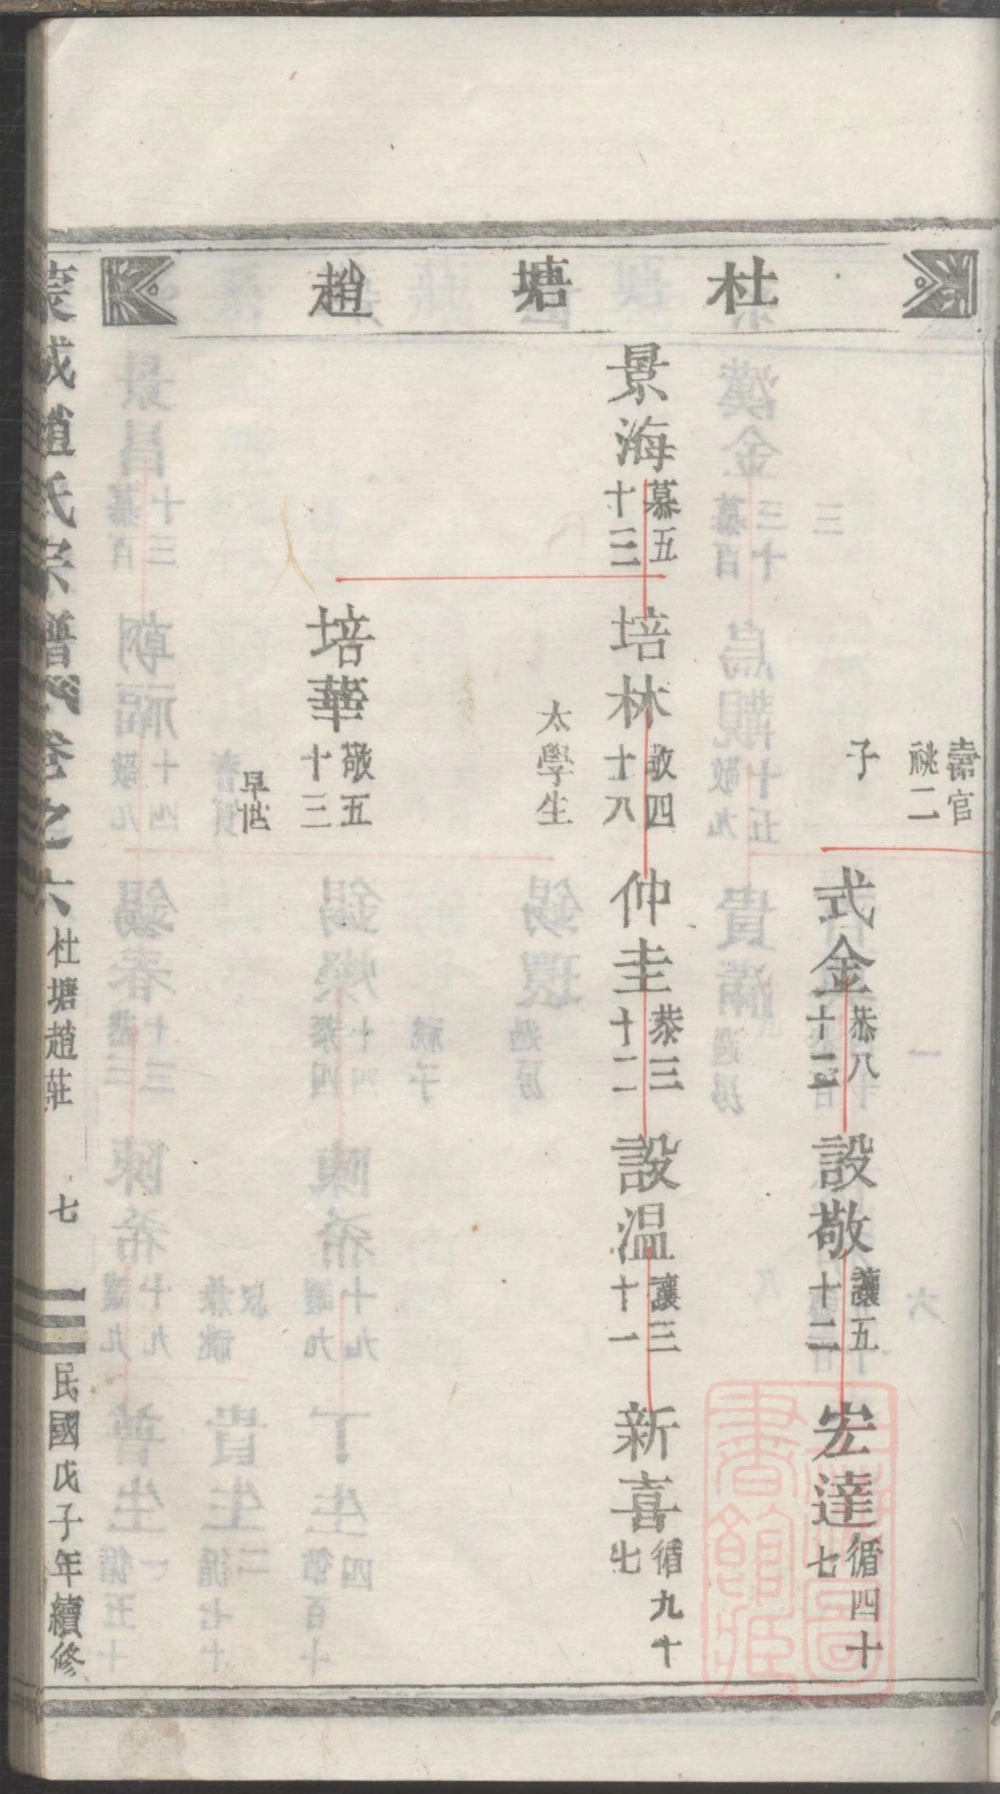 杜塘趙
壽官
祧二
子
式金 恭八十二
設敬 讓五十二
宏達 循四十七
景海 慕五十三
培林 敬四十八
太學生
仲圭 恭三十二
設溫 讓三十一
新喜 循九十七
培華 敬五十三
早世
趙氏宗譜 卷之六 杜塘趙莊 七 民國戊子年續修